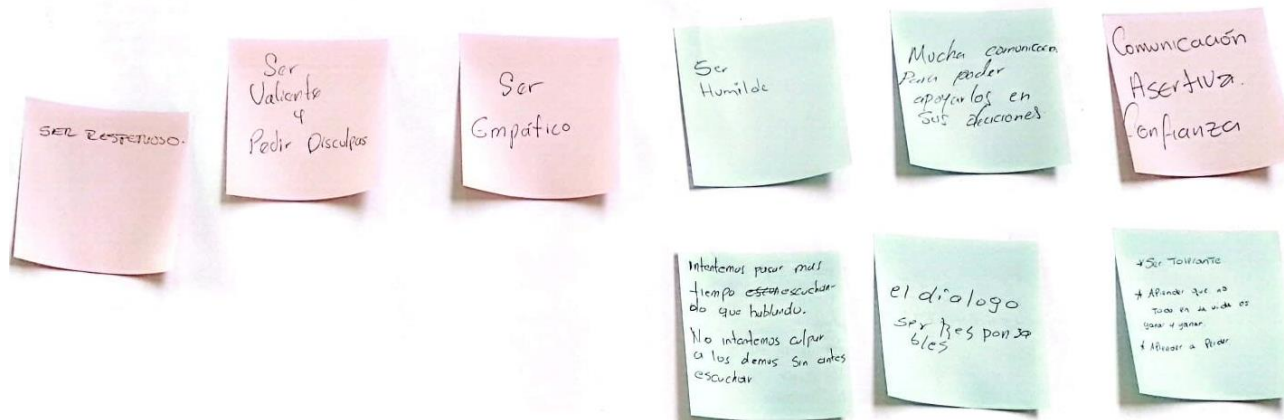 SER RESPETUOSO.
Ser
Valiente
y
Pedir Disculpas
Ser
Empático
Ser
Humilde
Mucha comunicacon
Para poder
apoyarlos en
sus deciciones
Comunicación
Asertiva.
Confianza
Intentemos pasar mas
tiempo escuchan-
do que hablando.
No intentemos culpar
a los demas sin antes
escuchar
el dialogo
ser Respon sa
bles
* Ser Tolerante
* APrender que no
Todo en la vida es
ganar y ganar.
* APrender a Perder